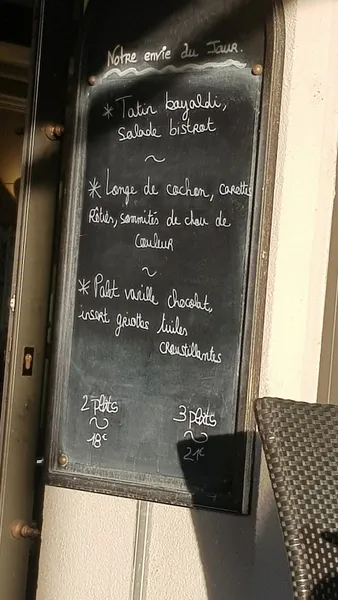 Notre envie du Jour.
* Tatin bayaldi,
Salade bistrot
~
* Longe de cochon, carottes
Rôties, sommités de chou de
Couleur
~
* Palet vanille chocolat,
insert griottes tuiles
croustillantes
2 plats 3 plats
~ ~
18€ 21€